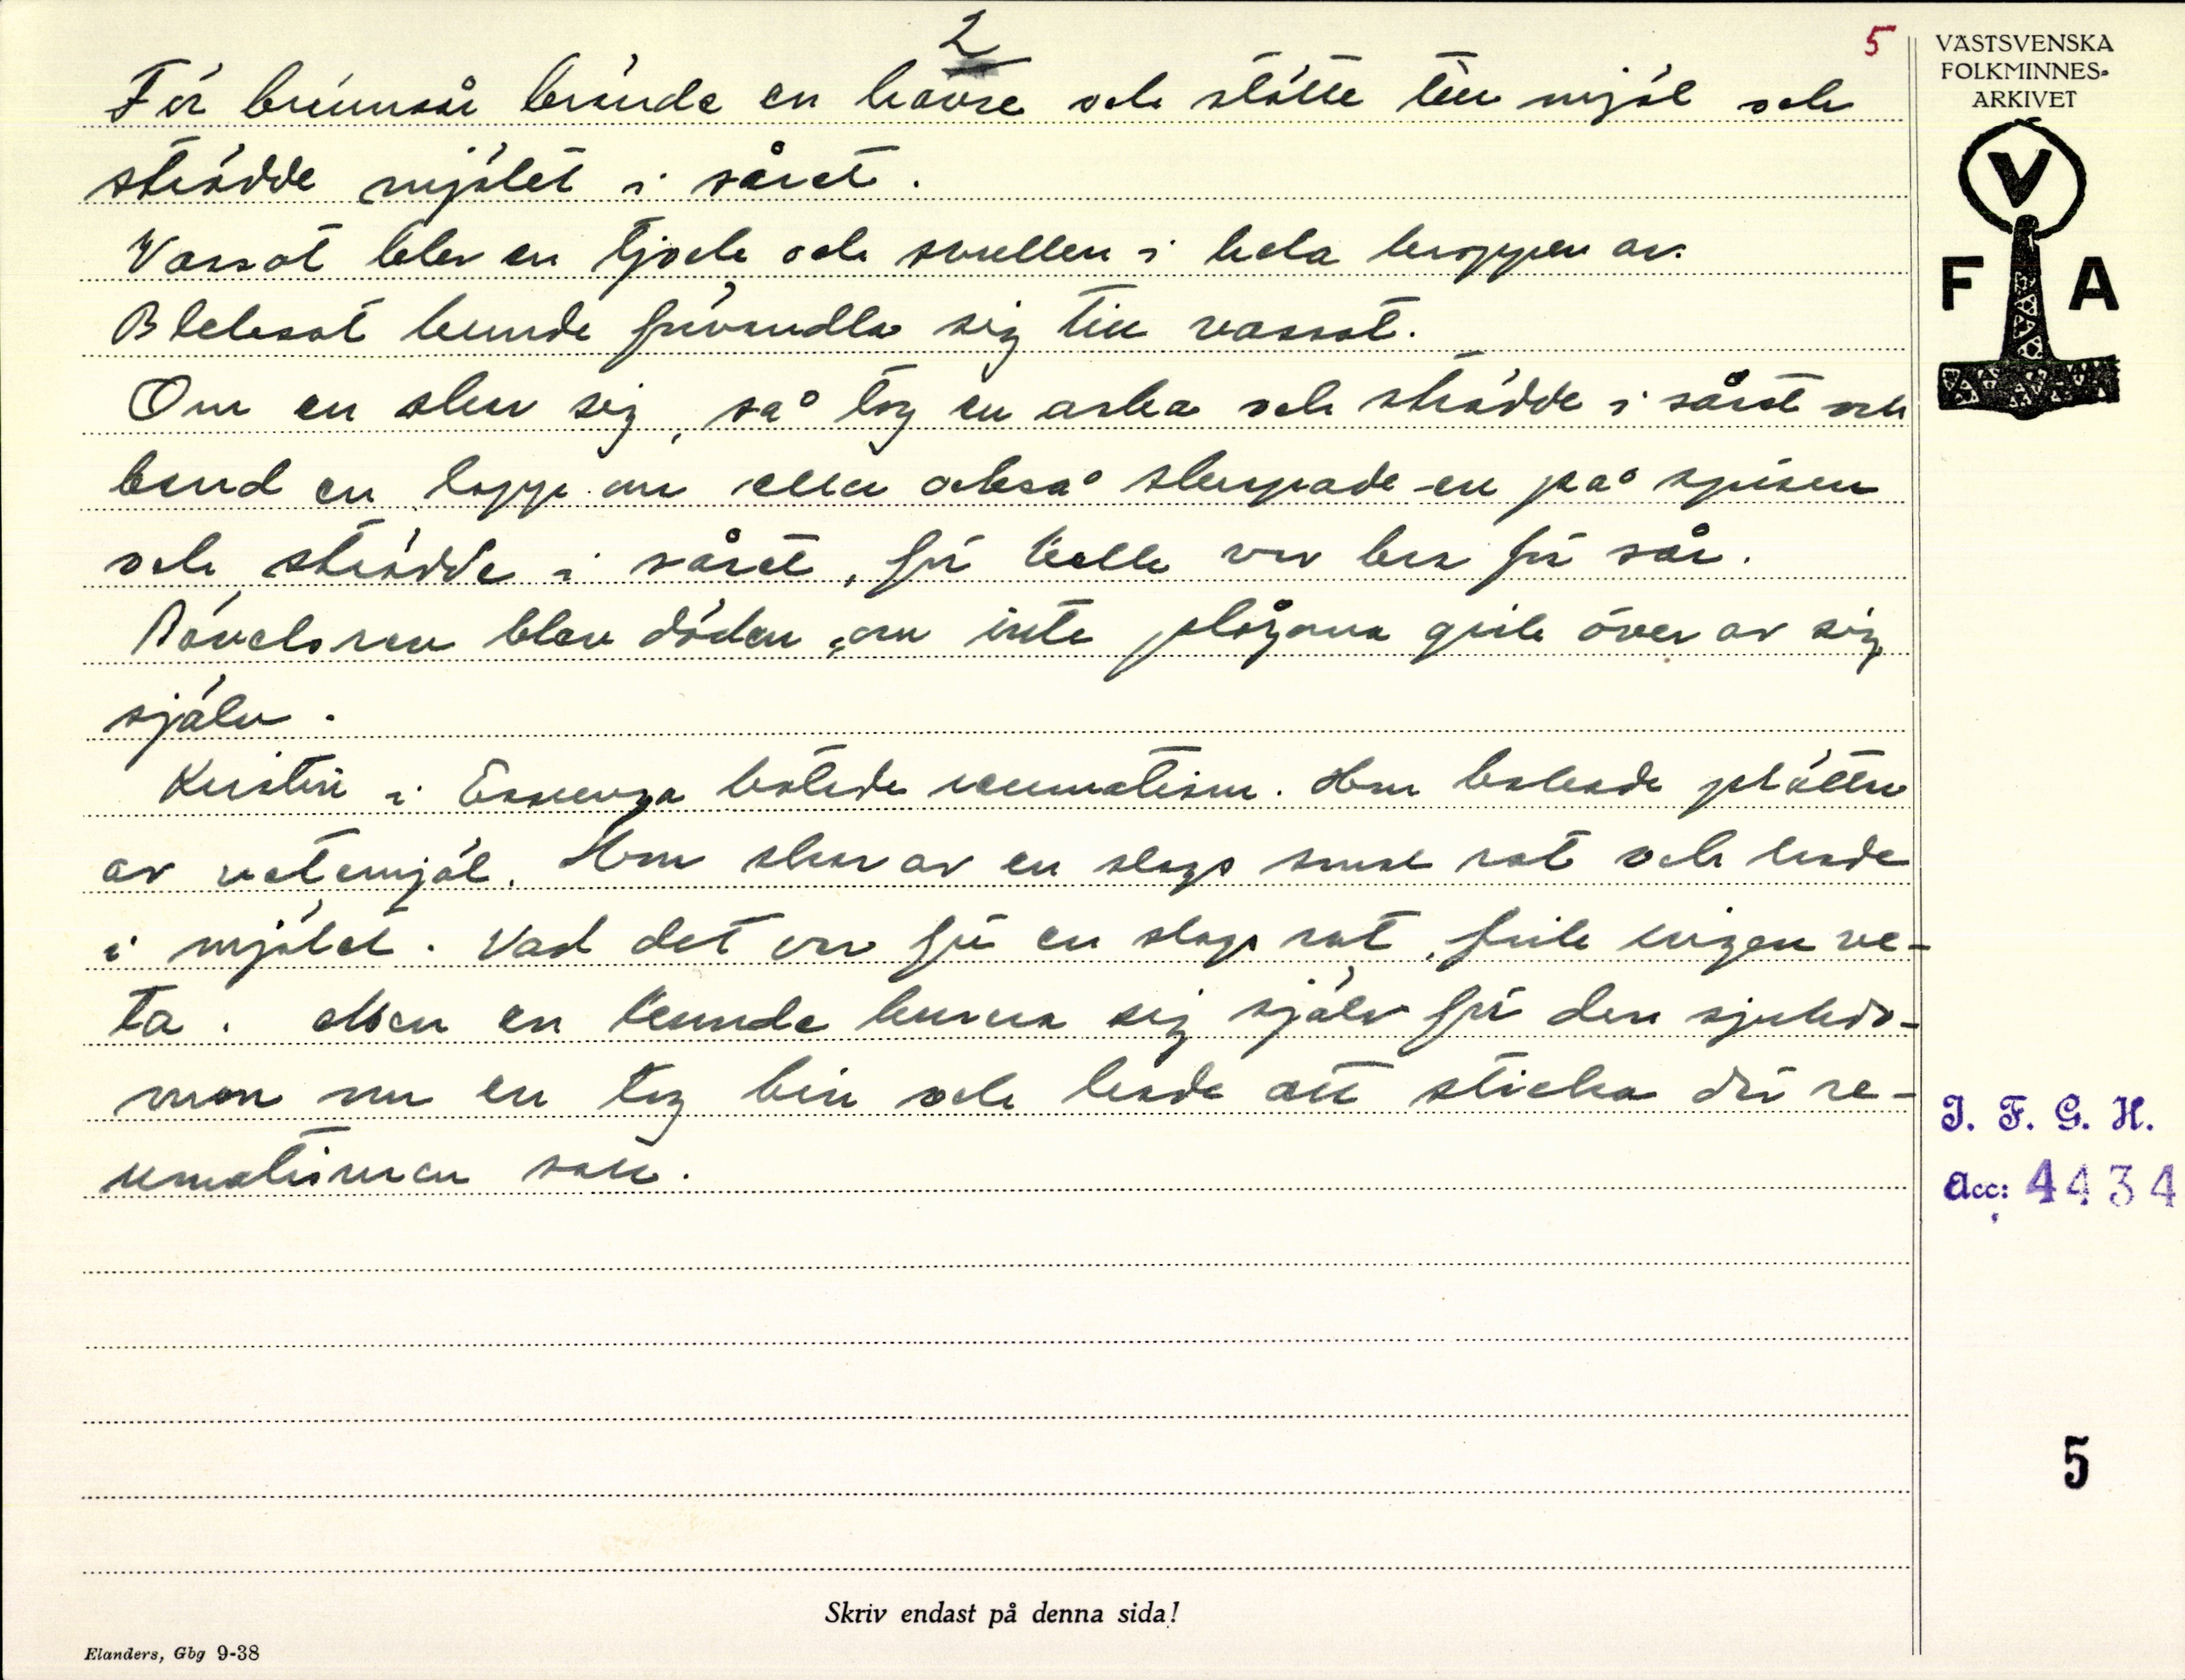 2
5
För brännsår brände en havre och stötte till mjöl och
strödde mjölet i såret.
Vassot blev en tjock och svullen i hela kroppen av.
Bleksot kunde förvandla sig till vassot.
Om en skar sig, så tog en aska och strödde i såret och
band en lapp om eller också skrapade en på spisen
och strödde i såret, för kalk var bra för sår.
blev döden, om inte plågorna gick över av sig
själv.
Kristin i botade reumatism. Hon bakade plättar
av vetemjöl. Hon skar av en slags smal rot och hade
i mjölet. Vad det var för en slags rot, fick ingen ve-
ta. Men en kunde kurera sig själv för den sjukdo-
men om en tog bin och hade att sticka där re-
umatismen satt.
VÄSTSVENSKA
FOLKMINNES-
ARKIVET
V
F A
I. F. G. H.
Acc: 4434
5
Skriv endast på denna sida!
Elanders, Gbg 9-38